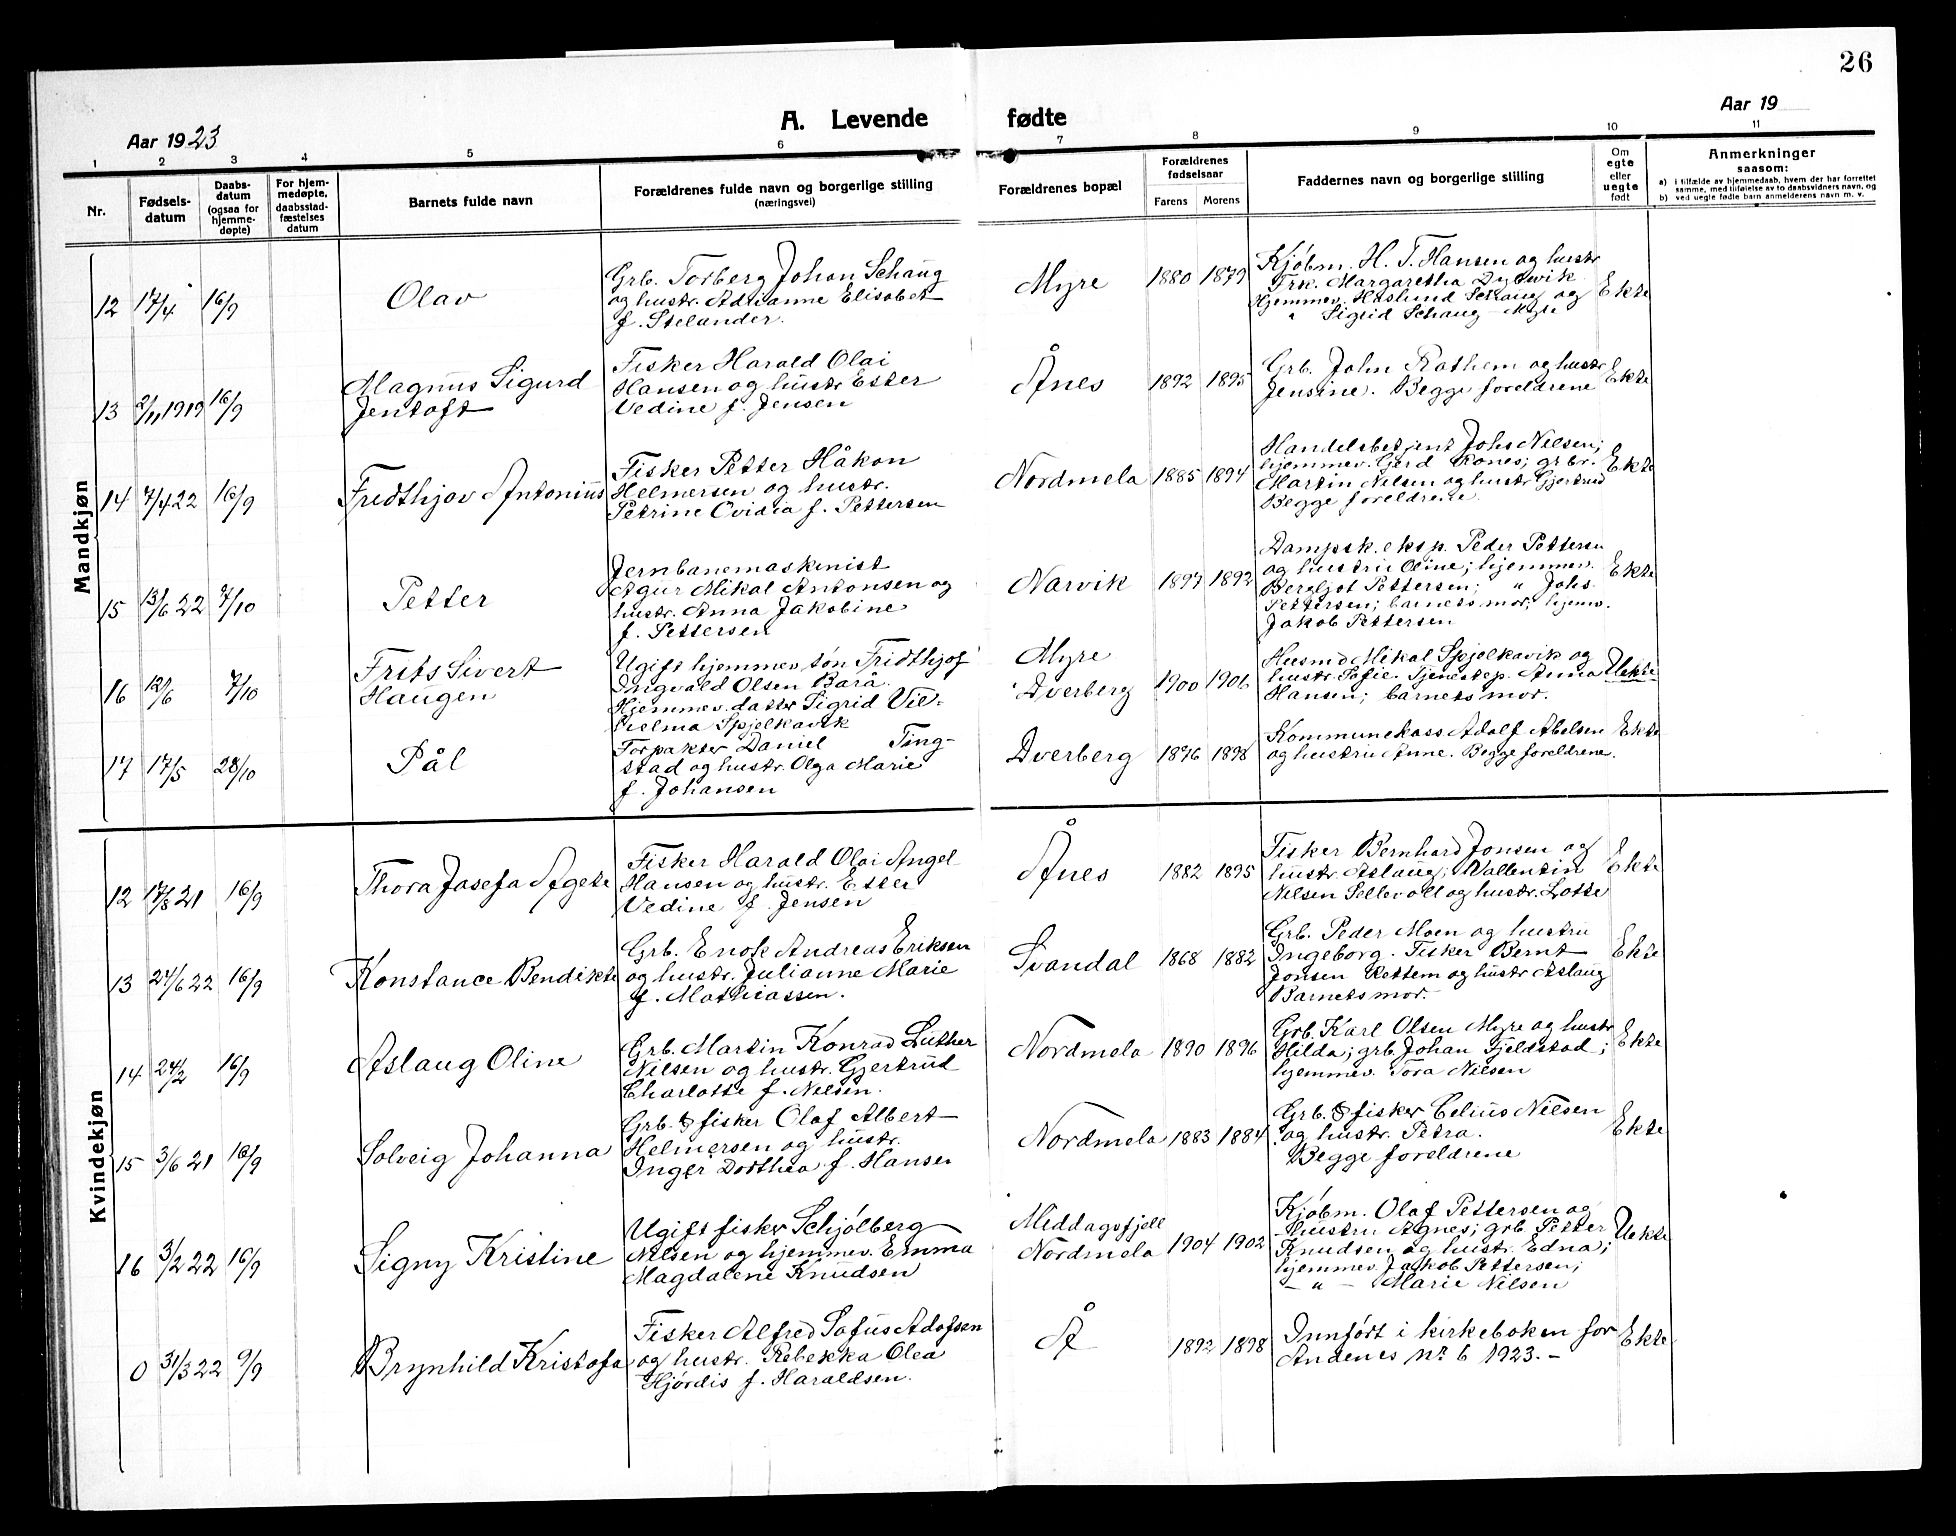 26
A. Levende fødte
Aar 1923
Aar 19
1 2 3 4 5 6 7 8 9 10 11
Nr.
Fødsels-
datum
Daabs-
datum
(ogsaa for
hjemme-
døpte)
For hjem-
medøpte,
daabsstad-
fæstelses
datum
Barnets fulde navn
Forældrenes fulde navn og borgerlige stilling
(næringsvei)
Forældrenes bopæl
Forældrenes
fødselsaar
Farens Morens
Faddernes navn og borgerlige stilling
Om
egte
eller
uegte
født
Anmerkninger
saasom:
a) i tilfælde av hjemmedaab, hvem der har forrettet
samme, med tilføielse av to daabsvidners navn, og
b) ved uegte fødte barn anmelderens navn m. v.
Mandkjøn
12 17/4 16/9
Olav
Grb. Torberg Johan Schaug
og hustr. Adrianne Elisabet
f. Stelander.
Myre
1880 1879
Kjøbm. H. T. Hansen og hustr
Frk. Margaretha Dybwik
Hjemmev. Haslund Schaug og
" Sigrid Schaug – Myre
Ekte
13 2/11 1919 16/9
Magnus Sigurd
Jentoft
Fisker Harald Olai
Hansen og hustr Ester
Vedine f. Jensen
Ånes
1892 1895
Grb. John Rathem og hustr
Jensine. Begge foreldrene
Ekte
14 7/4 22 16/9
Fridthjov Antonius
Fisker Petter Håkon
Helmersen og hustr.
Petrine Ovidia f. Pettersen
Nordmela
1885 1894
Handelsbetjent Johs Nilsen;
hjemmev. Gerd Rones; grbr.
Martin Nilsen og hustr Gjertrud
Begge foreldrene.
Ekte
15 13/6 22 7/10
Petter
Jernbanemaskinist
Agur Mikal Antonsen og
hustr. Anna Jakobine
f. Pettersen
Narvik
1897 1892
Dampsk.eksp. Peder Pettersen
og hustru Oline; hjemmev.
Bergljot Pettersen; " Johs
Pettersen; barnets mor; hjemv.
Jakob Pettersen
Ekte
16 12/6 7/10
Frits Sivert
Haugen
Ugift hjemmev. søn Fridthjof
Ingvald Olsen Barå
Hjemmev. datter Sigrid Vil-
helma Spjelkavik
Myre
Dverberg
1900 1906
Husmd Mikal Spjelkavik og
hustr. Sofie. Tjenestep. Anna
Hansen; barnets mor.
Uekte
17 17/5 28/10
Pål
Forpakter Daniel Ting-
stad og hustr. Olga Marie
f. Johansen
Dverberg
1896 1898
Kommunekass Adolf Abelsen
og hustru Anne. Begge foreldrene.
Ekte
Kvindekjøn
12 17/8 21 16/9
Thora Josefa Agete
Fisker Harald Olai Angel
Hansen og hustr. Ester
Vedine f. Jensen
Ånes
1882 1895
Fisker Bernhard Jonsen og
hustr. Aslaug; Vallentin
Nilsen Sellevoll og hustr. Lotte
Ekte
13 24/6 22 16/9
Konstance Bendikte
Grb. Enok Andreas Eriksen
og hustr. Julianne Marie
f. Mathiassen.
Svandal
1868 1882
Grb. Peder Moen og hustru
Ingeborg. Fisker Bernt
Jonsen Rettem og hustr Aslaug
Barnets mor.
Ekte
14 24/2 16/9
Aslaug Oline
Grb. Martin Konrad Luther
Nilsen og hustr. Gjertrud
Charlotte f. Nilsen.
Nordmela
1890 1896
Grb. Karl Olsen Myre og hustr
Hilda; grb. Johan Fjeldstad;
hjemmev. Tora Nilsen
Ekte
15 3/6 21 16/9
Solveig Johanna
Grb. & fisker Olaf Albert
Helmersen og hustr.
Inger Dorthea f. Hansen
Nordmela
1883 1884
Grb. & fisker Celius Nilsen
og hustr. Petra.
Begge foreldrene
Ekte
16 3/2 22 16/9
Signy Kristine
Ugift fisker Schjølberg
Nilsen og hjemmev. Emma
Magdalene Knudsen
Middagsfjell
Nordmela
1904 1902
Kjøbm. Olaf Pettersen og
hustru Agnes; grb Petter
Knudsen og hustr. Edna;
hjemmev. Jakob Pettersen;
– " – Marie Nilsen
Uekte
0 31/3 22 9/9
Brynhild Kristofa
Fisker Alfred Sofus Adofsen
og hustr. Rebekka Olea
Hjørdis f. Haraldsen.
Å
1892 1898
Innført i kirkeboken for
Andenes nr 6 1923. –
Ekte